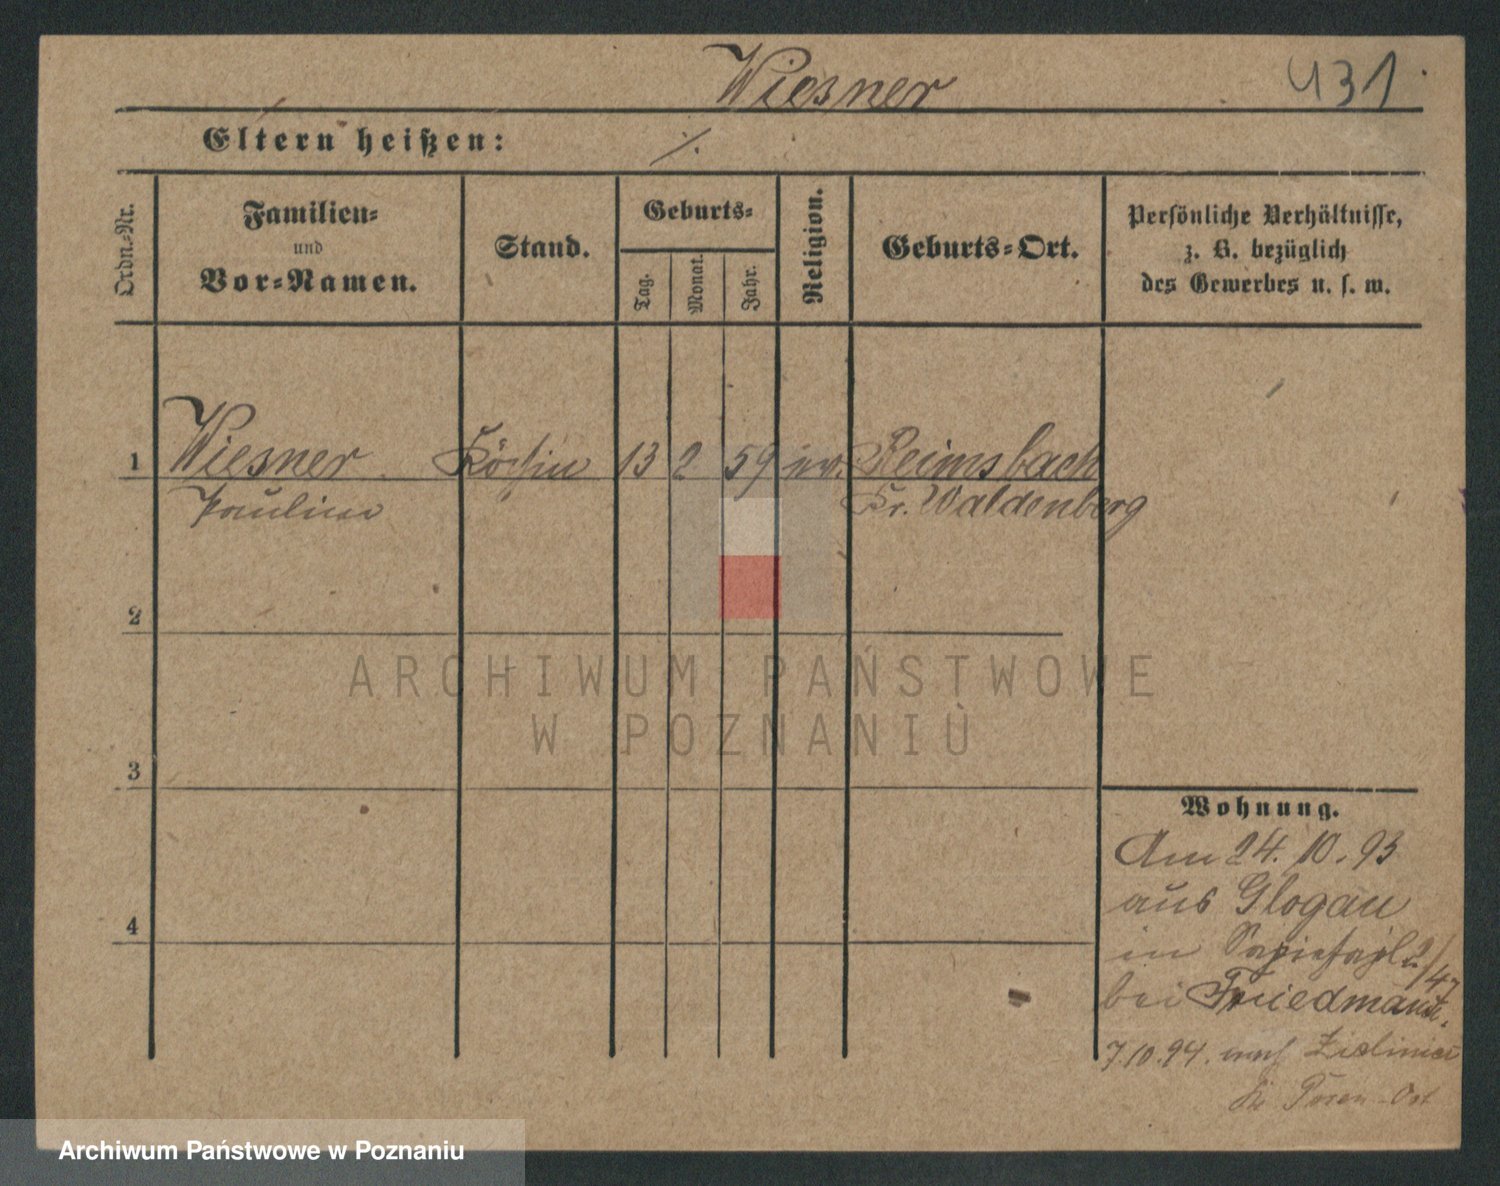 Wiesner 431
Eltern heißen: ⁒
Ordn.-Nr.
Familien-
und
Vor-Namen.
Stand.
Geburts-
Tag.
Monat.
Jahr.
Religion.
Geburts-Ort.
Persönliche Verhältnisse,
z. B. bezüglich
des Gewerbes u. s. w.
1 Wiesner Köchin 13 2 59 ev. Reimsbach
Pauline Kr. Waldenberg
2
3
4
Wohnung.
Am 24. 10. 93
aus Glogau
in Sapiehapl. 2/
bei Friedmann
7.10.94. nach
Kr. Posen-Ost
ARCHIWUM PAŃSTWOWE
W POZNANIU
Archiwum Państwowe w Poznaniu